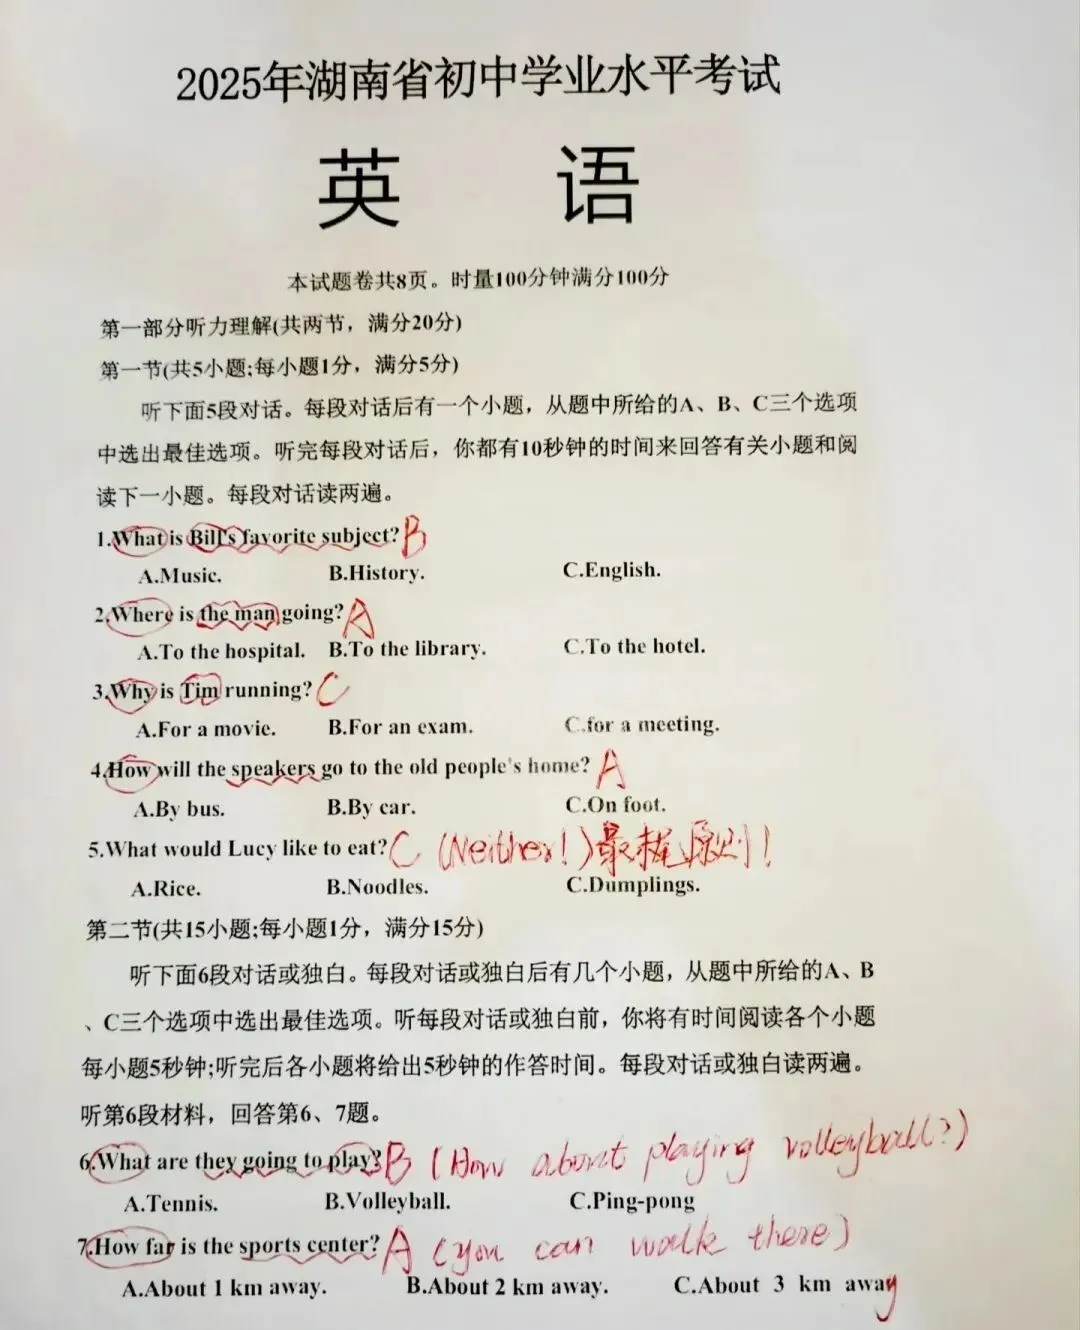 2025年湖南省初中学业水平考试
英 语
本试题卷共8页。时量100分钟满分100分
第一部分听力理解(共两节，满分20分)
第一节(共5小题;每小题1分，满分5分)
听下面5段对话。每段对话后有一个小题，从题中所给的A、B、C三个选项
中选出最佳选项。听完每段对话后，你都有10秒钟的时间来回答有关小题和阅
读下一小题。每段对话读两遍。
1.What is Bill's favorite subject? B
A.Music. B.History. C.English.
2.Where is the man going? A
A.To the hospital. B.To the library. C.To the hotel.
3.Why is Tim running? C
A.For a movie. B.For an exam. C.for a meeting.
4.How will the speakers go to the old people's home? A
A.By bus. B.By car. C.On foot.
5.What would Lucy like to eat? C (Neither!)最尾原则!
A.Rice. B.Noodles. C.Dumplings.
第二节(共15小题;每小题1分，满分15分)
听下面6段对话或独白。每段对话或独白后有几个小题，从题中所给的A、B
、C三个选项中选出最佳选项。听每段对话或独白前，你将有时间阅读各个小题
每小题5秒钟;听完后各小题将给出5秒钟的作答时间。每段对话或独白读两遍。
听第6段材料，回答第6、7题。
6.What are they going to play? B (How about playing volleyball?)
A.Tennis. B.Volleyball. C.Ping-pong
7.How far is the sports center? A (you can walk there)
A.About 1 km away. B.About 2 km away. C.About 3 km away